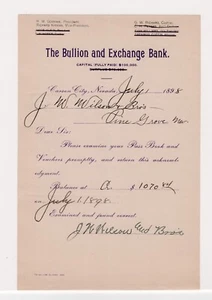 The Bullion and Exchange Bank.
CAPITAL (FULLY PAID) $100,000.
Carson City, Nevada, July 1 1898
J. M. Wilson
Pine Grove Nev
Dear Sir:
Please examine your Pass Book and
Vouchers promptly, and return this acknowl-
edgment.
Balance at $1070.84
on July 1, 1898.
Examined and found correct.
J W Wilson